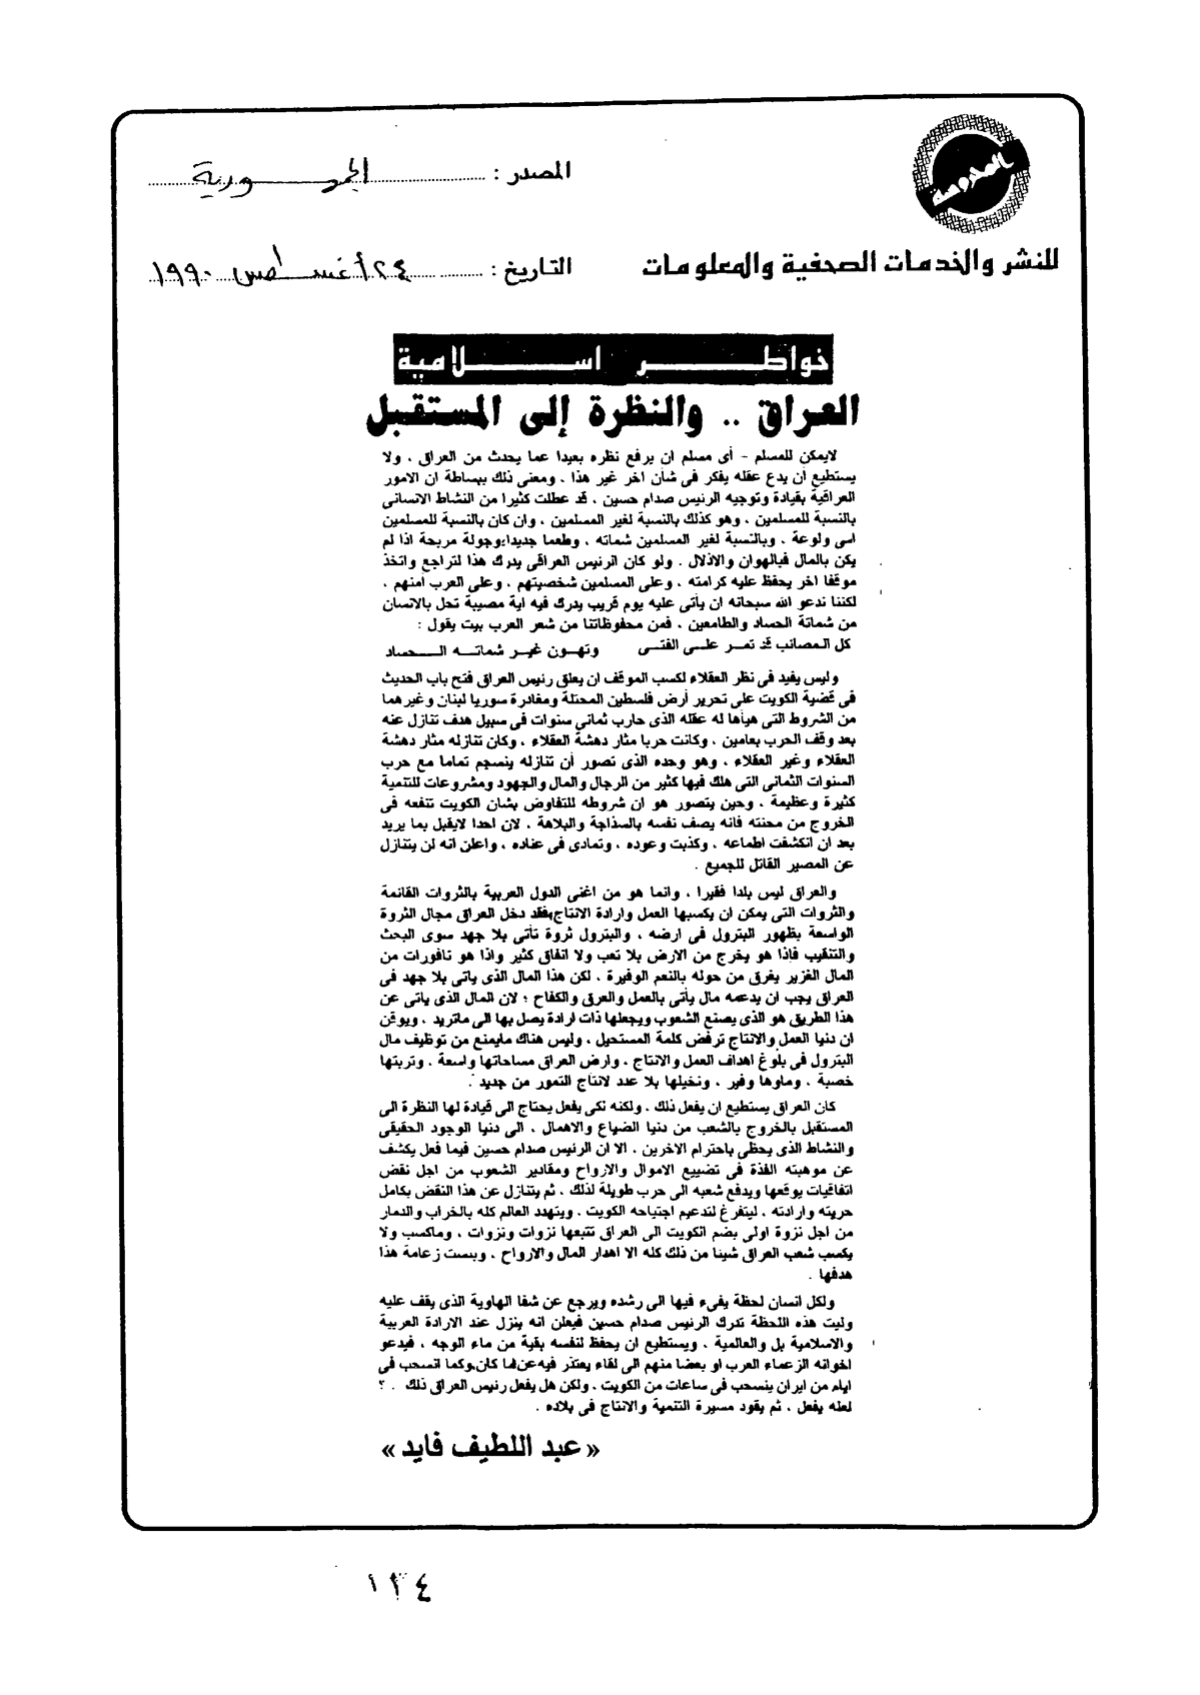 المصدر : الجمهورية
للنشر والخدمات الصحفية والمعلومات
التاريخ : ٢٤ أغسطس ١٩٩٠
خواطر اسلامية
العراق .. والنظرة إلى المستقبل
لايمكن للمسلم - أى مسلم ان يرفع نظره بعيدا عما يحدث من العراق ، ولا
يستطيع ان يدع عقله يفكر فى شأن اخر غير هذا ، ومعنى ذلك ببساطة ان الامور
العراقية بقيادة وتوجيه الرئيس صدام حسين ، قد عطلت كثيرا من النشاط الانسانى
بالنسبة للمسلمين ، وهو كذلك بالنسبة لغير المسلمين ، وان كان بالنسبة للمسلمين
اسى ولوعة ، وبالنسبة لغير المسلمين شماته ، وطعما جديدا وجولة مربحة اذا لم
يكن بالمال فبالهوان والاذلال . ولو كان الرئيس العراقى يدرك هذا لتراجع واتخذ
موقفا اخر يحفظ عليه كرامته ، وعلى المسلمين شخصيتهم ، وعلى العرب امنهم ،
لكننا ندعو الله سبحانه ان يأتى عليه يوم قريب يدرك فيه اية مصيبة تحل بالانسان
من شماتة الحساد والطامعين ، فمن محفوظاتنا من شعر العرب بيت يقول :
كل المصائب قد تمر على الفتى وتهون غير شماته الحساد
وليس يفيد فى نظر العقلاء لكسب الموقف ان يعلق رئيس العراق فتح باب الحديث
فى قضية الكويت على تحرير أرض فلسطين المحتلة ومغادرة سوريا لبنان وغيرهما
من الشروط التى هيأها له عقله الذى حارب ثمانى سنوات فى سبيل هدف تنازل عنه
بعد وقف الحرب بعامين ، وكانت حربا مثار دهشة العقلاء ، وكان تنازله مثار دهشة
العقلاء وغير العقلاء ، وهو وحده الذى تصور أن تنازله ينسجم تماما مع حرب
السنوات الثمانى التى هلك فيها كثير من الرجال والمال والجهود ومشروعات للتنمية
كثيرة وعظيمة ، وحين يتصور هو ان شروطه للتفاوض بشان الكويت تنفعه فى
الخروج من محنته فانه يصف نفسه بالسذاجة والبلاهة ، لان احدا لايقبل بما يريد
بعد ان انكشفت اطماعه ، وكذبت وعوده ، وتمادى فى عناده ، واعلن انه لن يتنازل
عن المصير القاتل للجميع .
والعراق ليس بلدا فقيرا ، وانما هو من اغنى الدول العربية بالثروات القائمة
والثروات التى يمكن ان يكسبها العمل وارادة الانتاج فقد دخل العراق مجال الثروة
الواسعة بظهور البترول فى ارضه ، والبترول ثروة تأتى بلا جهد سوى البحث
والتنقيب فاذا هو يخرج من الارض بلا تعب ولا انفاق كثير واذا هو نافورات من
المال الغزير يغرق من حوله بالنعم الوفيرة ، لكن هذا المال الذى ياتى بلا جهد فى
العراق يجب ان يدعمه مال يأتى بالعمل والعرق والكفاح ؛ لان المال الذى ياتى عن
هذا الطريق هو الذى يصنع الشعوب ويجعلها ذات ارادة يصل بها الى ماتريد . ويوقن
ان دنيا العمل والانتاج ترفض كلمة المستحيل ، وليس هناك مايمنع من توظيف مال
البترول فى بلوغ اهداف العمل والانتاج ، وارض العراق مساحاتها واسعة ، وتربتها
خصبة ، وماوها وفير ، ونخيلها بلا عدد لانتاج التمور من جديد .
كان العراق يستطيع ان يفعل ذلك ، ولكنه لكى يفعل يحتاج الى قيادة لها النظرة الى
المستقبل بالخروج بالشعب من دنيا الضياع والاهمال ، الى دنيا الوجود الحقيقى
والنشاط الذى يحظى باحترام الاخرين ، الا ان الرئيس صدام حسين فيما فعل يكشف
عن موهبته الفذة فى تضييع الاموال والارواح ومقادير الشعوب من اجل نقض
اتفاقيات يوقعها ويدفع شعبه الى حرب طويلة لذلك ، ثم يتنازل عن هذا النقض بكامل
حريته وارادته ، ليتفرغ لتدعيم اجتياحه الكويت . ويتهدد العالم كله بالخراب والدمار
من اجل نزوة اولى بضم الكويت الى العراق تتبعها نزوات ونزوات ، وماكسب ولا
يكسب شعب العراق شيئا من ذلك كله الا اهدار المال والارواح ، وبئست زعامة هذا
هدفها .
ولكل انسان لحظة يفىء فيها الى رشده ويرجع عن شفا الهاوية الذى يقف عليه
وليت هذه اللحظة تدرك الرئيس صدام حسين فيعلن انه ينزل عند الارادة العربية
والاسلامية بل والعالمية ، ويستطيع ان يحفظ لنفسه بقية من ماء الوجه ، فيدعو
اخوانه الزعماء العرب او بعضا منهم الى لقاء يعتذر فيه عن ما كان وكما انسحب فى
ايام من ايران ينسحب فى ساعات من الكويت ، ولكن هل يفعل رئيس العراق ذلك . ؟
لعله يفعل ، ثم يقود مسيرة التنمية والانتاج فى بلاده .
« عبد اللطيف فايد »
١٣٤